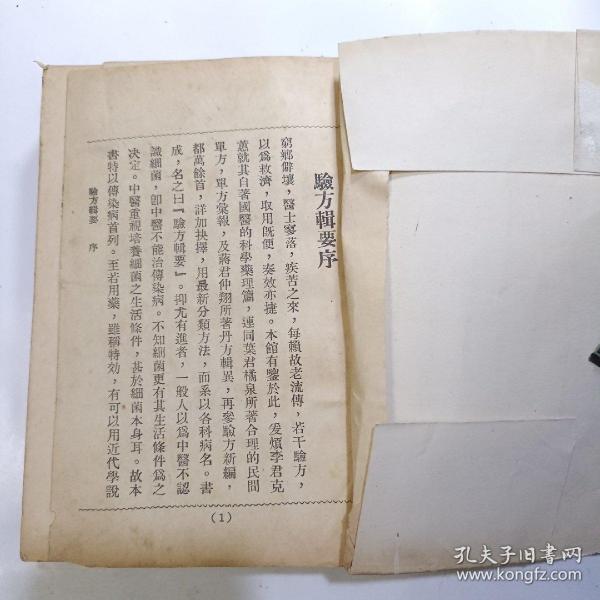 驗方輯要序
窮鄉僻壤，醫士寥落，疾苦之來，每賴故老流傳，若干驗方，
以爲救濟，取用旣便，奏效亦捷。本館有鑒於此，爰煩李君克
蕙就其自著國醫的科學藥理篇，連同葉君橘泉所著合理的民間
單方，單方彙報，及蔣君仲翔所著丹方輯異，再參驗方新編，
都萬餘首，詳加抉擇，用最新分類方法，而系以各科病名。書
成，名之曰『驗方輯要』。抑尤有進者，一般人以爲中醫不認
識細菌，卽中醫不能治傳染病。不知細菌更有其生活條件爲之
决定。中醫重視培養細菌之生活條件，甚於細菌本身耳。故本
書特以傳染病首列。至若用藥，雖稱特効，有可以用近代學說
驗方輯要　序
(1)
孔夫子旧书网
www.kongfz.com